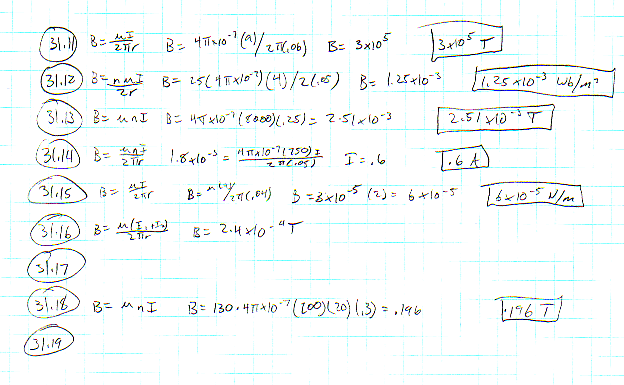 31.11 B = μI/2πr B = 4π×10⁻⁷(9)/2π(.06) B = 3×10⁵ 3×10⁵ T
31.12 B = nμI/2r B = 25(4π×10⁻⁷)(4)/2(.05) B = 1.25×10⁻³ 1.25×10⁻³ Wb/m²
31.13 B = μnI B = 4π×10⁻⁷(8000)(.25) = 2.51×10⁻³ 2.51×10⁻³ T
31.14 B = μnI/2πr 1.8×10⁻³ = 4π×10⁻⁷(750)I/2π(.05) I = .6 .6 A
31.15 B = μI/2πr B = /2π(.04) B = 3×10⁻⁵ (2) = 6×10⁻⁵ 6×10⁻⁵ N/m
31.16 B = μ(I₁+I₂)/2πr B = 2.4×10⁻⁴ T
31.17
31.18 B = μnI B = 130·4π×10⁻⁷(200)(20)(.3) = .196 .196 T
31.19